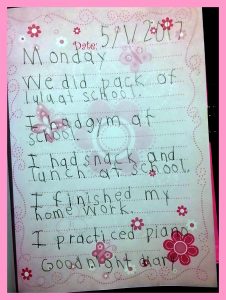 Date: 5/1/201
Monday
We did pack of
lulu at school.
I had gym at
school.
I had snack and
lunch at school.
I finished my
home work.
I practiced piano
Goodnight diary